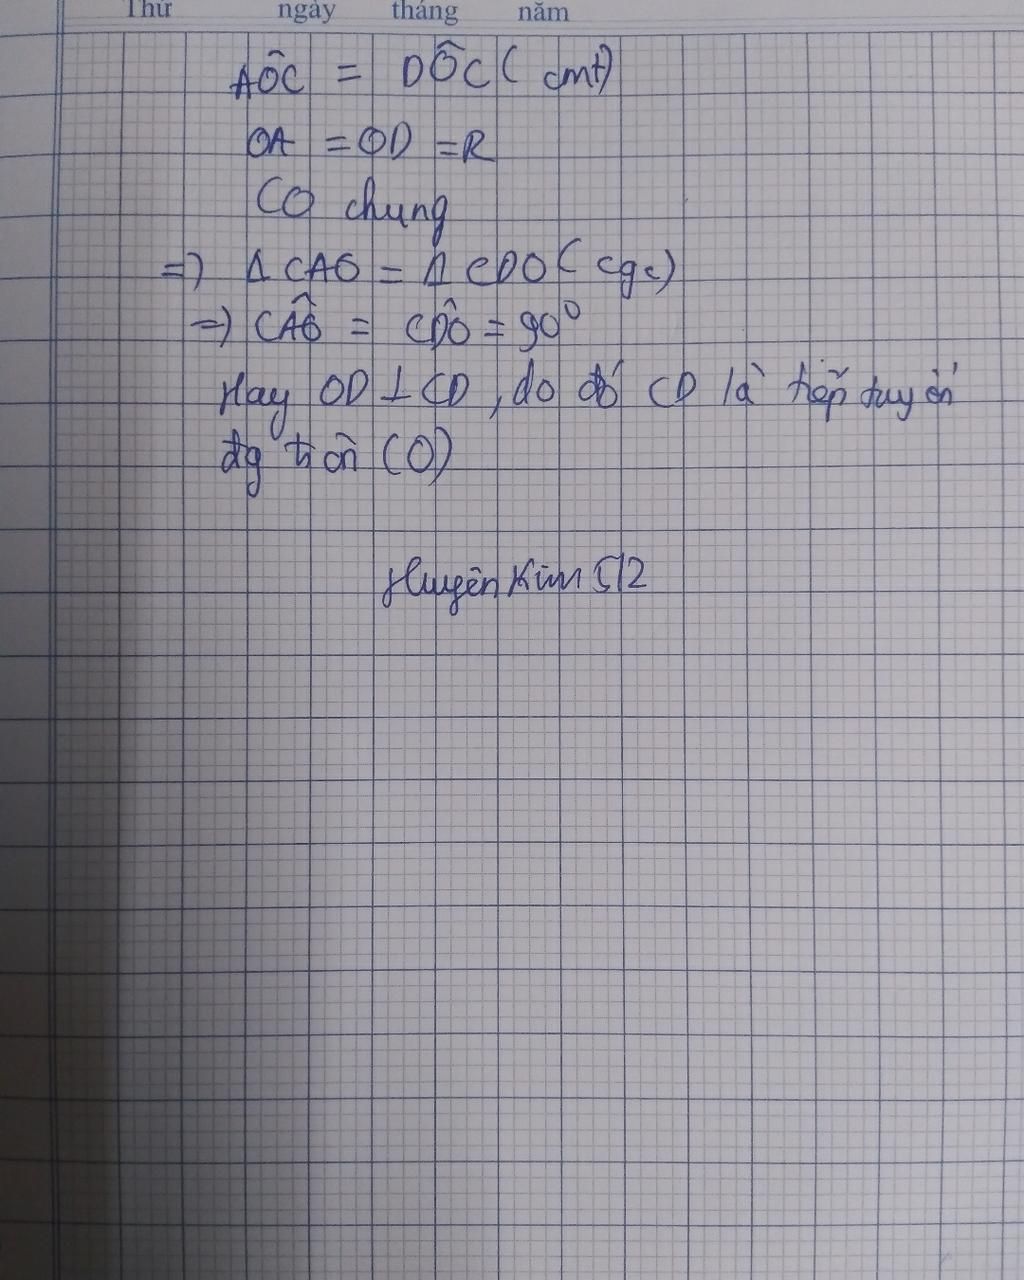 Thứ ngày tháng năm
AÔC = DÔC ( cmt)
OA = OD = R
CO chung
=> Δ CAO = Δ CDO ( cgc)
=> CÂO = CD̂O = 90⁰
Hay OD ⊥ CD , do đó CD là tiếp tuyến
đg tròn (O)
Huyền Kim 512